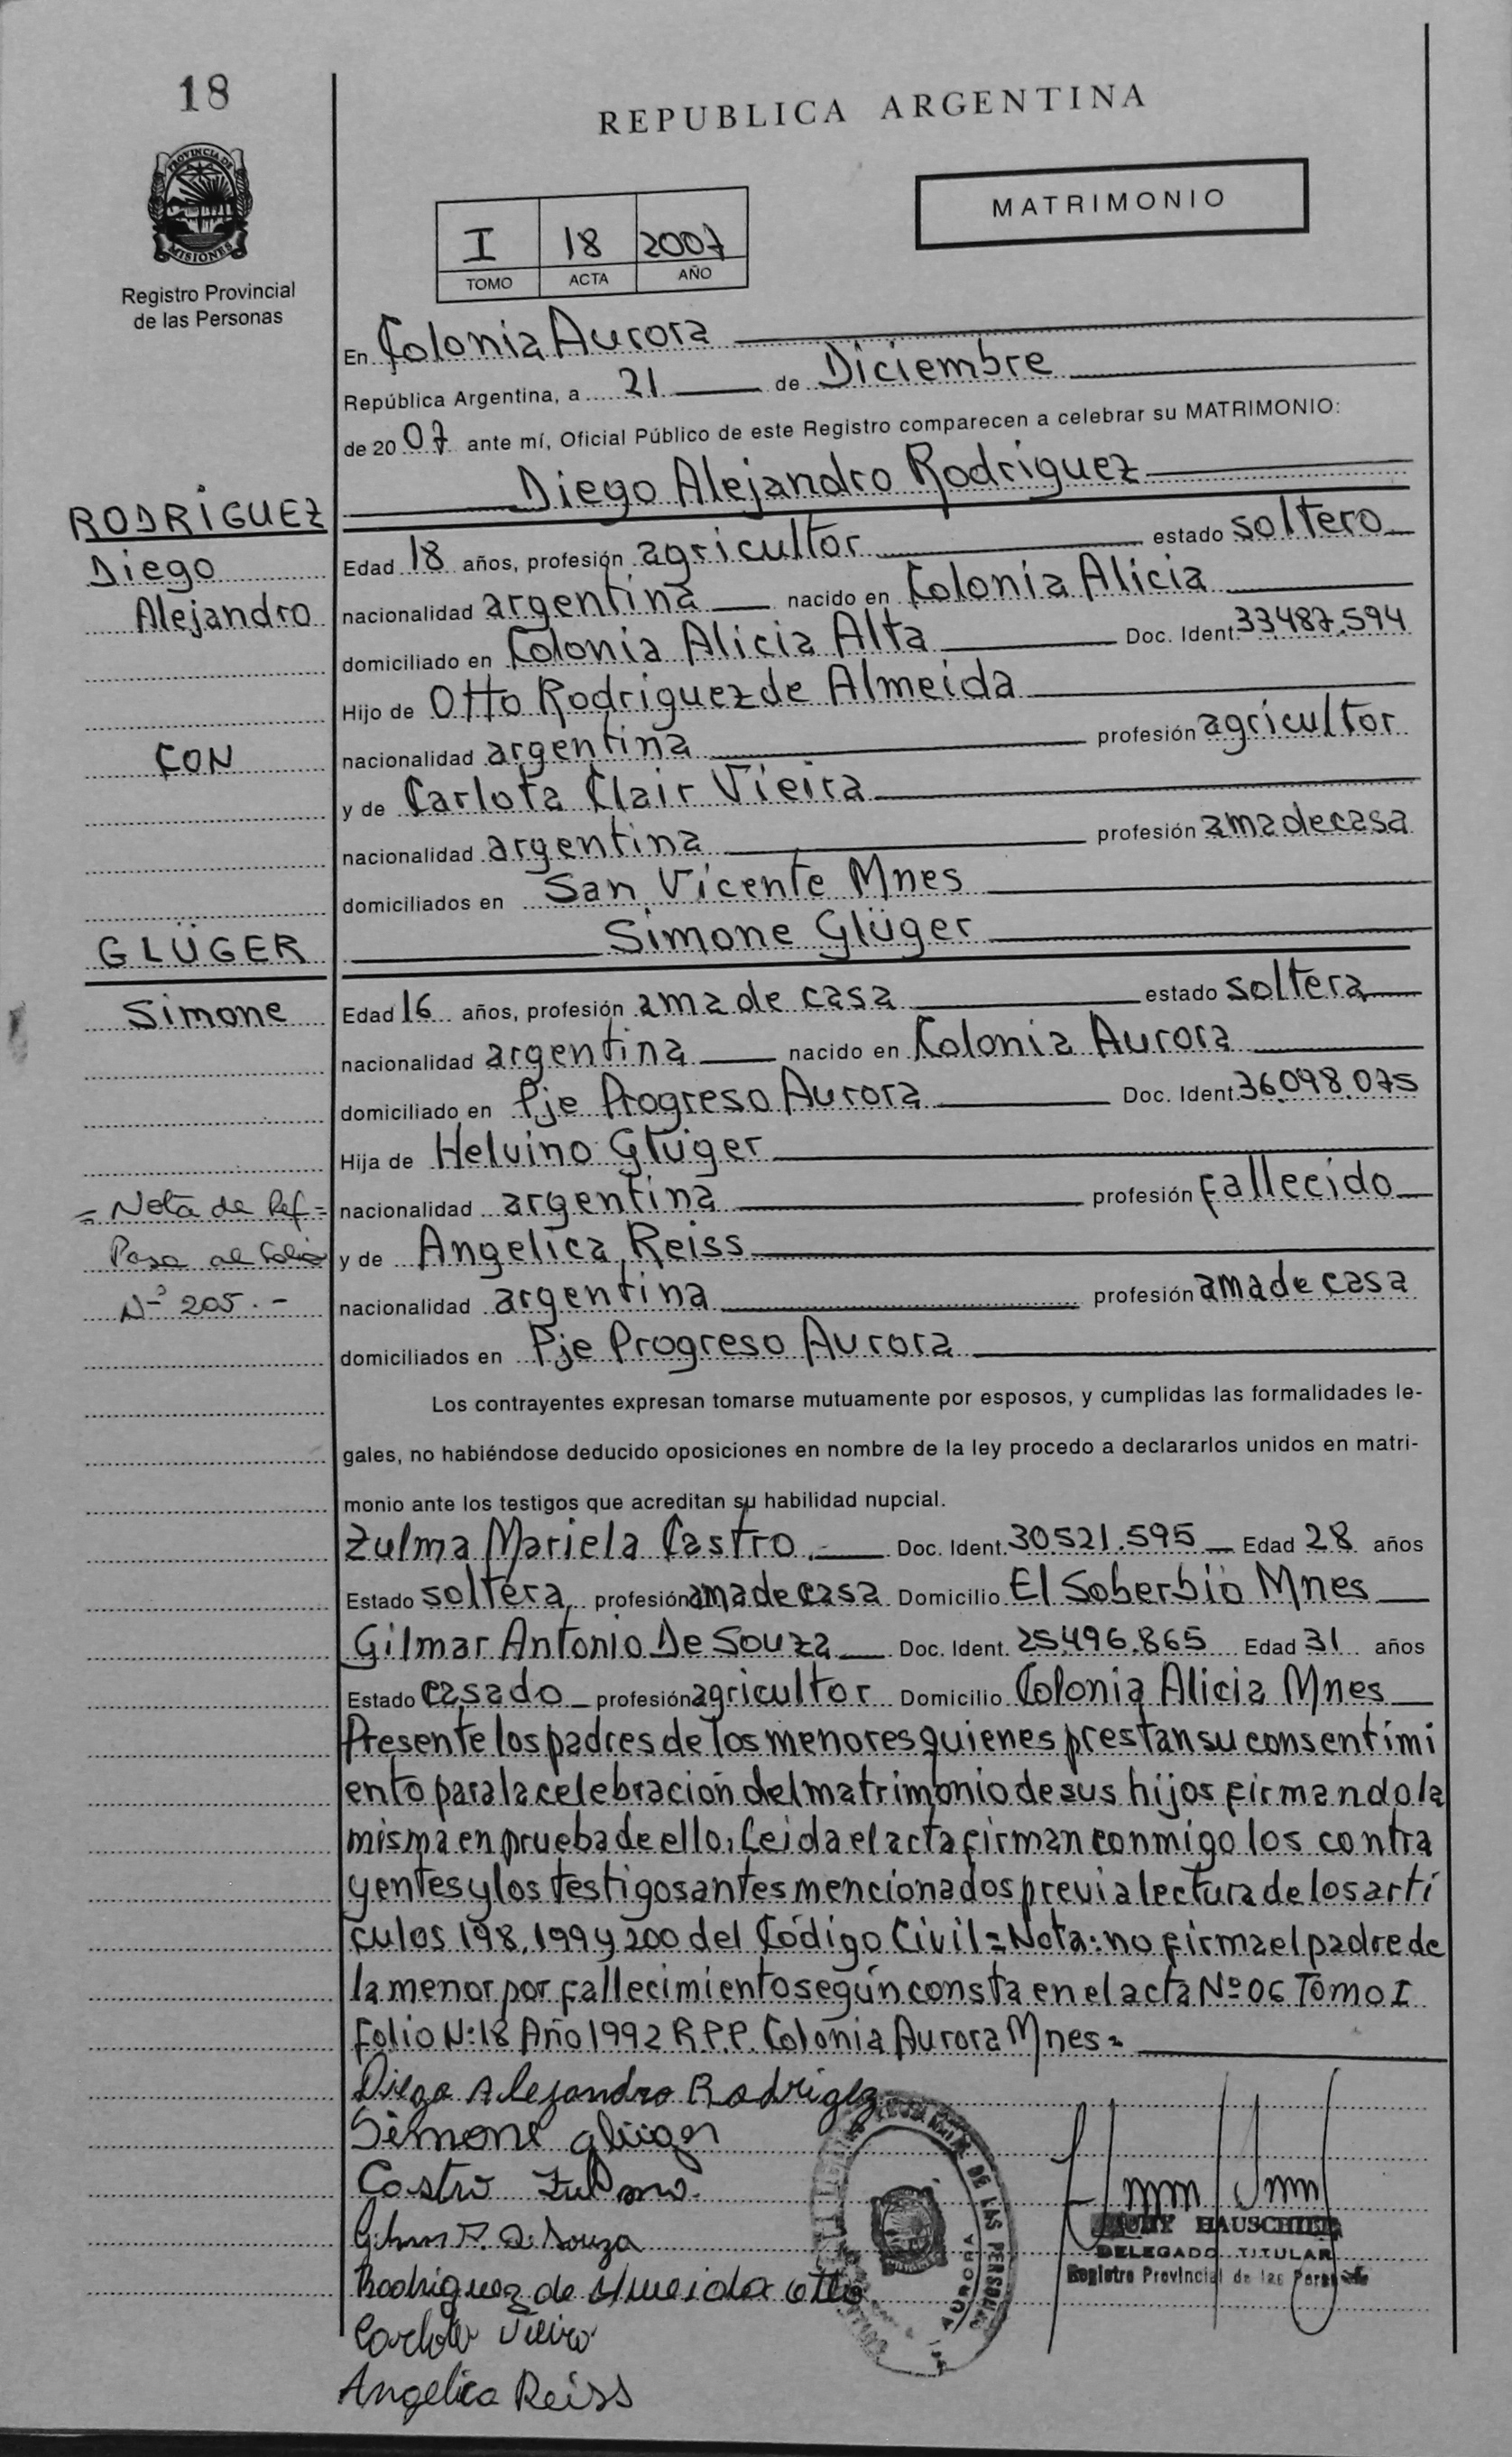 18
REPUBLICA ARGENTINA
PROVINCIA DE
MISIONES
Registro Provincial
de las Personas
I 18 2007
TOMO ACTA AÑO
MATRIMONIO
En Colonia Aurora
República Argentina, a 21 de Diciembre
de 2007 ante mí, Oficial Público de este Registro comparecen a celebrar su MATRIMONIO:
Diego Alejandro Rodriguez
RODRÍGUEZ
Diego
Alejandro
Edad 18 años, profesión agricultor estado soltero
nacionalidad argentina nacido en Colonia Alicia
domiciliado en Colonia Alicia Alta Doc. Ident. 33.487.594
Hijo de Otto Rodriguez de Almeida
CON
nacionalidad argentina profesión agricultor
y de Carlota Clair Vieira
nacionalidad argentina profesión ama de casa
domiciliados en San Vicente Mnes
GLÜGER
Simone Glüger
Simone
Edad 16 años, profesión ama de casa estado soltera
nacionalidad argentina nacido en Colonia Aurora
domiciliado en Pje Progreso Aurora Doc. Ident. 36.098.075
Hija de Helvino Glüger
= Nota de Ref =
Pasa al Folio
Nº 205.-
nacionalidad argentina profesión fallecido
y de Angelica Reiss
nacionalidad argentina profesión ama de casa
domiciliados en Pje Progreso Aurora
Los contrayentes expresan tomarse mutuamente por esposos, y cumplidas las formalidades le-
gales, no habiéndose deducido oposiciones en nombre de la ley procedo a declararlos unidos en matri-
monio ante los testigos que acreditan su habilidad nupcial.
Zulma Mariela Castro.- Doc. Ident. 30.521.595 Edad 28 años
Estado soltera profesión ama de casa Domicilio El Soberbio Mnes
Gilmar Antonio De Souza Doc. Ident. 25.496.865 Edad 31 años
Estado casado profesión agricultor Domicilio Colonia Alicia Mnes
Presente los padres de los menores quienes prestan su consentimi
ento para la celebración del matrimonio de sus hijos firmando la
misma en prueba de ello. Leida el acta firman conmigo los contra
yentes y los testigos antes mencionados previa lectura de los artí
culos 198, 199 y 200 del Código Civil = Nota: no firma el padre de
la menor por fallecimiento según consta en el acta Nº 06 Tomo I
Folio Nº 18 Año 1992 R.P.P. Colonia Aurora Mnes =
Diego Alejandro Rodrigez
Simone glüger
Castro Zulma
Gilmar A. De Souza
Rodriguez de Almeida Otto
Carlota Vieira
Angelica Reiss
DE LAS PERSONAS
AURORA
HAUSCHILD
DELEGADO TITULAR
Registro Provincial de las Personas